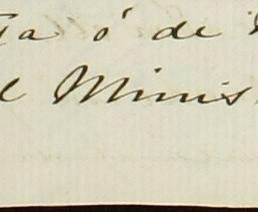 ta ó de
l Minis